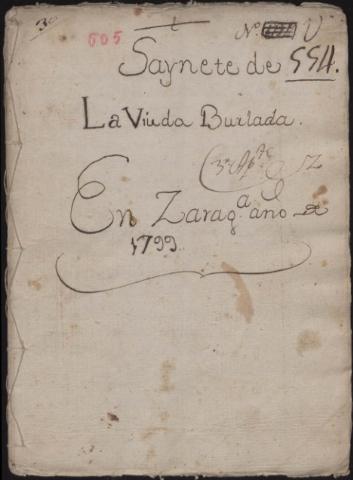 605 t Nº V
Saynete de 554.
La Viuda Burlada.
En Zarag.a año de
1799